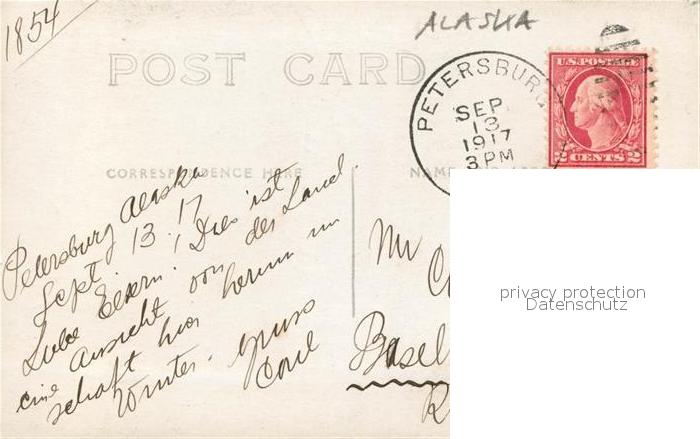 1854
ALASKA
POST CARD
PETERSBURG
SEP.
13
1917
3 PM
U.S. POSTAGE
2 CENTS 2
CORRESPONDENCE HERE
NAME
Petersburg Alaska
Sept 13. 17
Liebe Eltern! Dies ist
eine Ansicht von der Land
schaft hier herum im
Winter. Gruss
Mr
Basel
privacy protection
Datenschutz